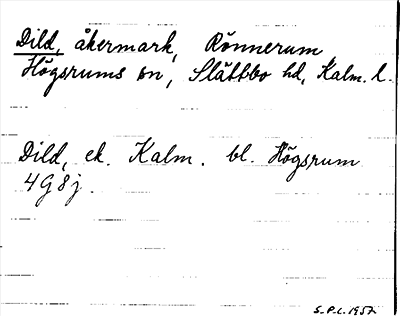 Dild, åkermark, Rönnerum
Högsrums sn, Slättbo hd, Kalm. l.
Dild, ek. Kalm. bl. Högsrum
4G8j.
S.P.L. 1957